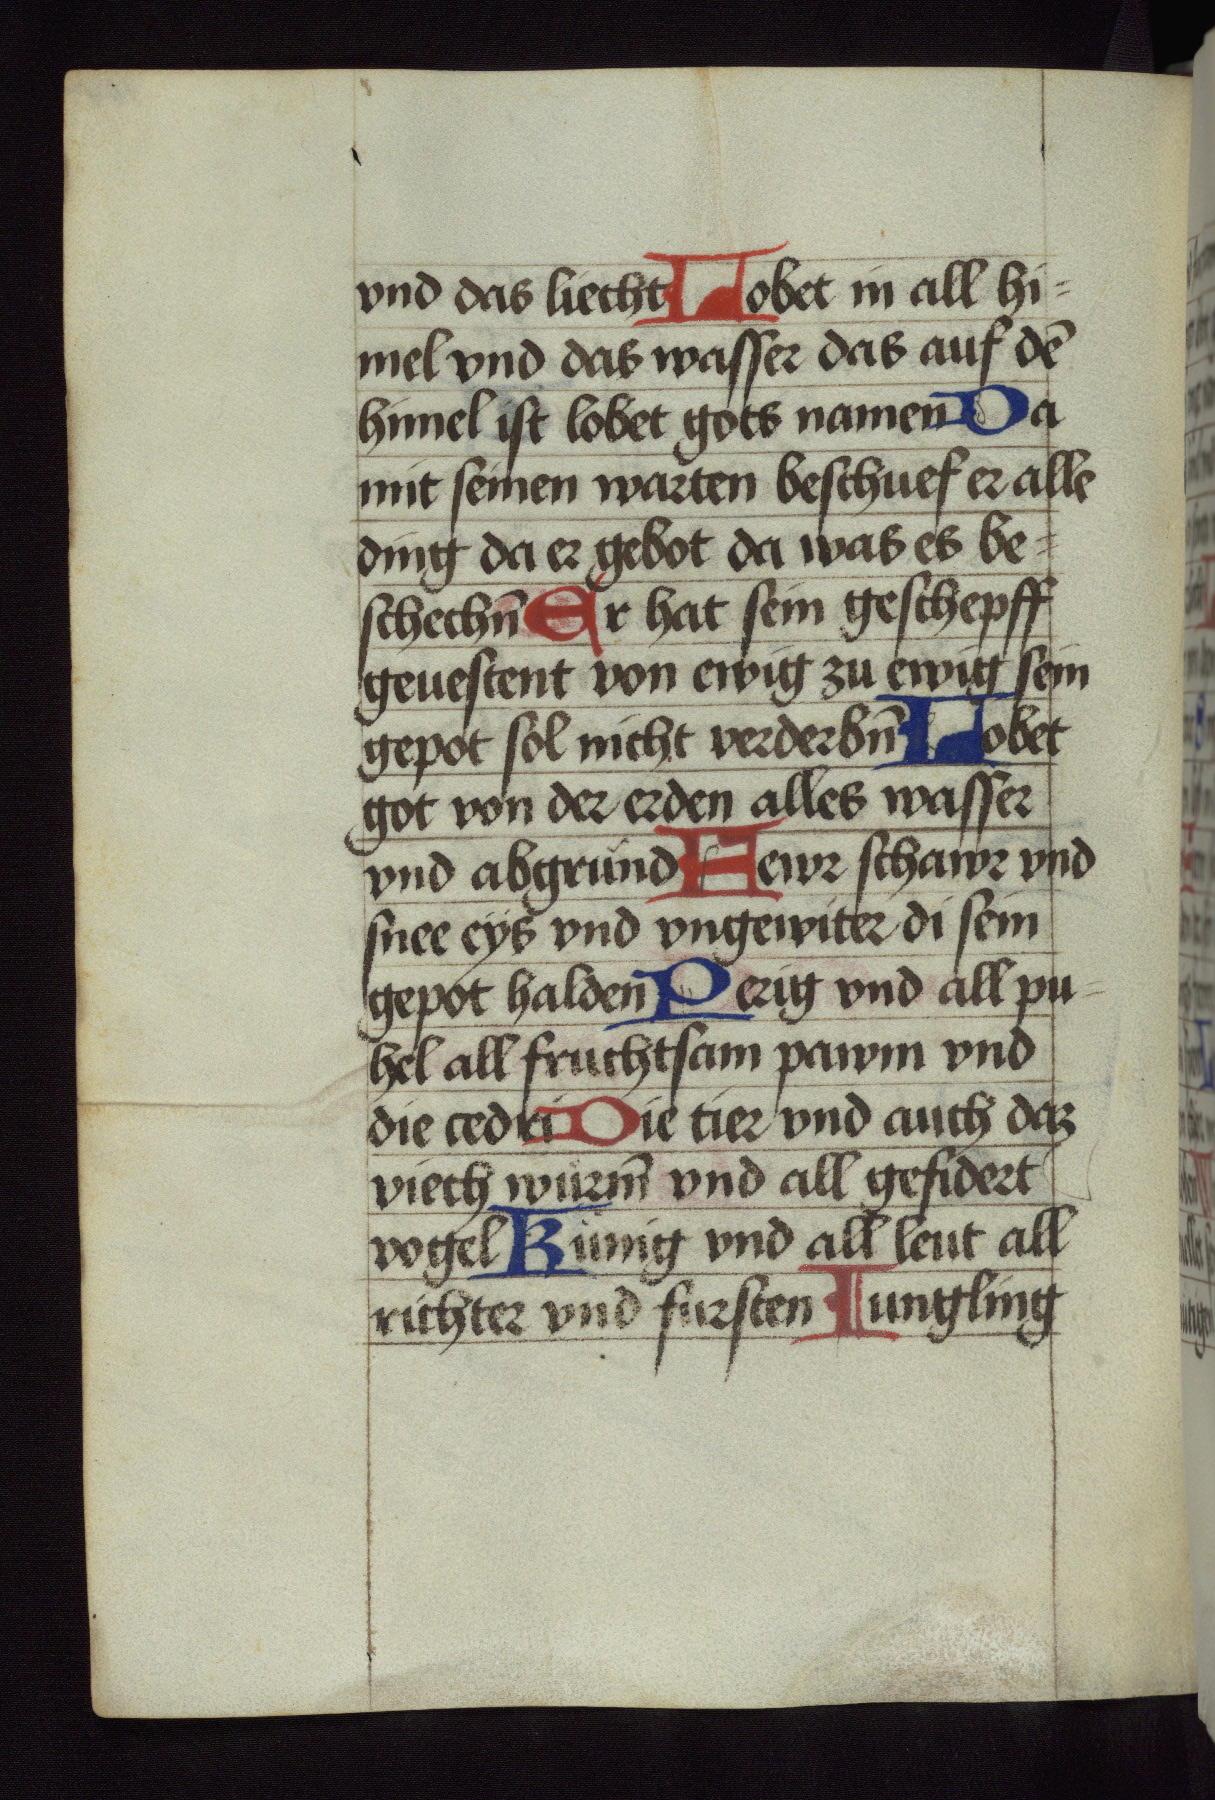 vnd das liecht Lobet in all hi=
mel vnd das wasser das auf dē
himel ist lobet gots namen Da
mit seinen warten beschuef er alle
ding da er gebot da was es be=
schechn̄ Er hat sein geschepff
geuestent von ewig zu ewig sein
gepot sol nicht verderbn̄ Lobet
got von der erden alles wasser
vnd abgrund Fewr schawr vnd
snee eys vnd vngewiter di sein
gepot halden Perig vnd all pu-
hel all fruchtsam pawm vnd
die cedri Die tier vnd auch daz
viech würm̄ vnd all gefidert
vogel Künig vnd all leut all
richter vnd fursten Iungling